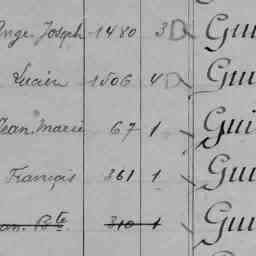 Ange Joseph 1480 3 D Gui
Lucien 1506 4 D Gui
Jean Marie 67 1 Gui
François 361 1 Gui
Jean Bte 310 1 Gui